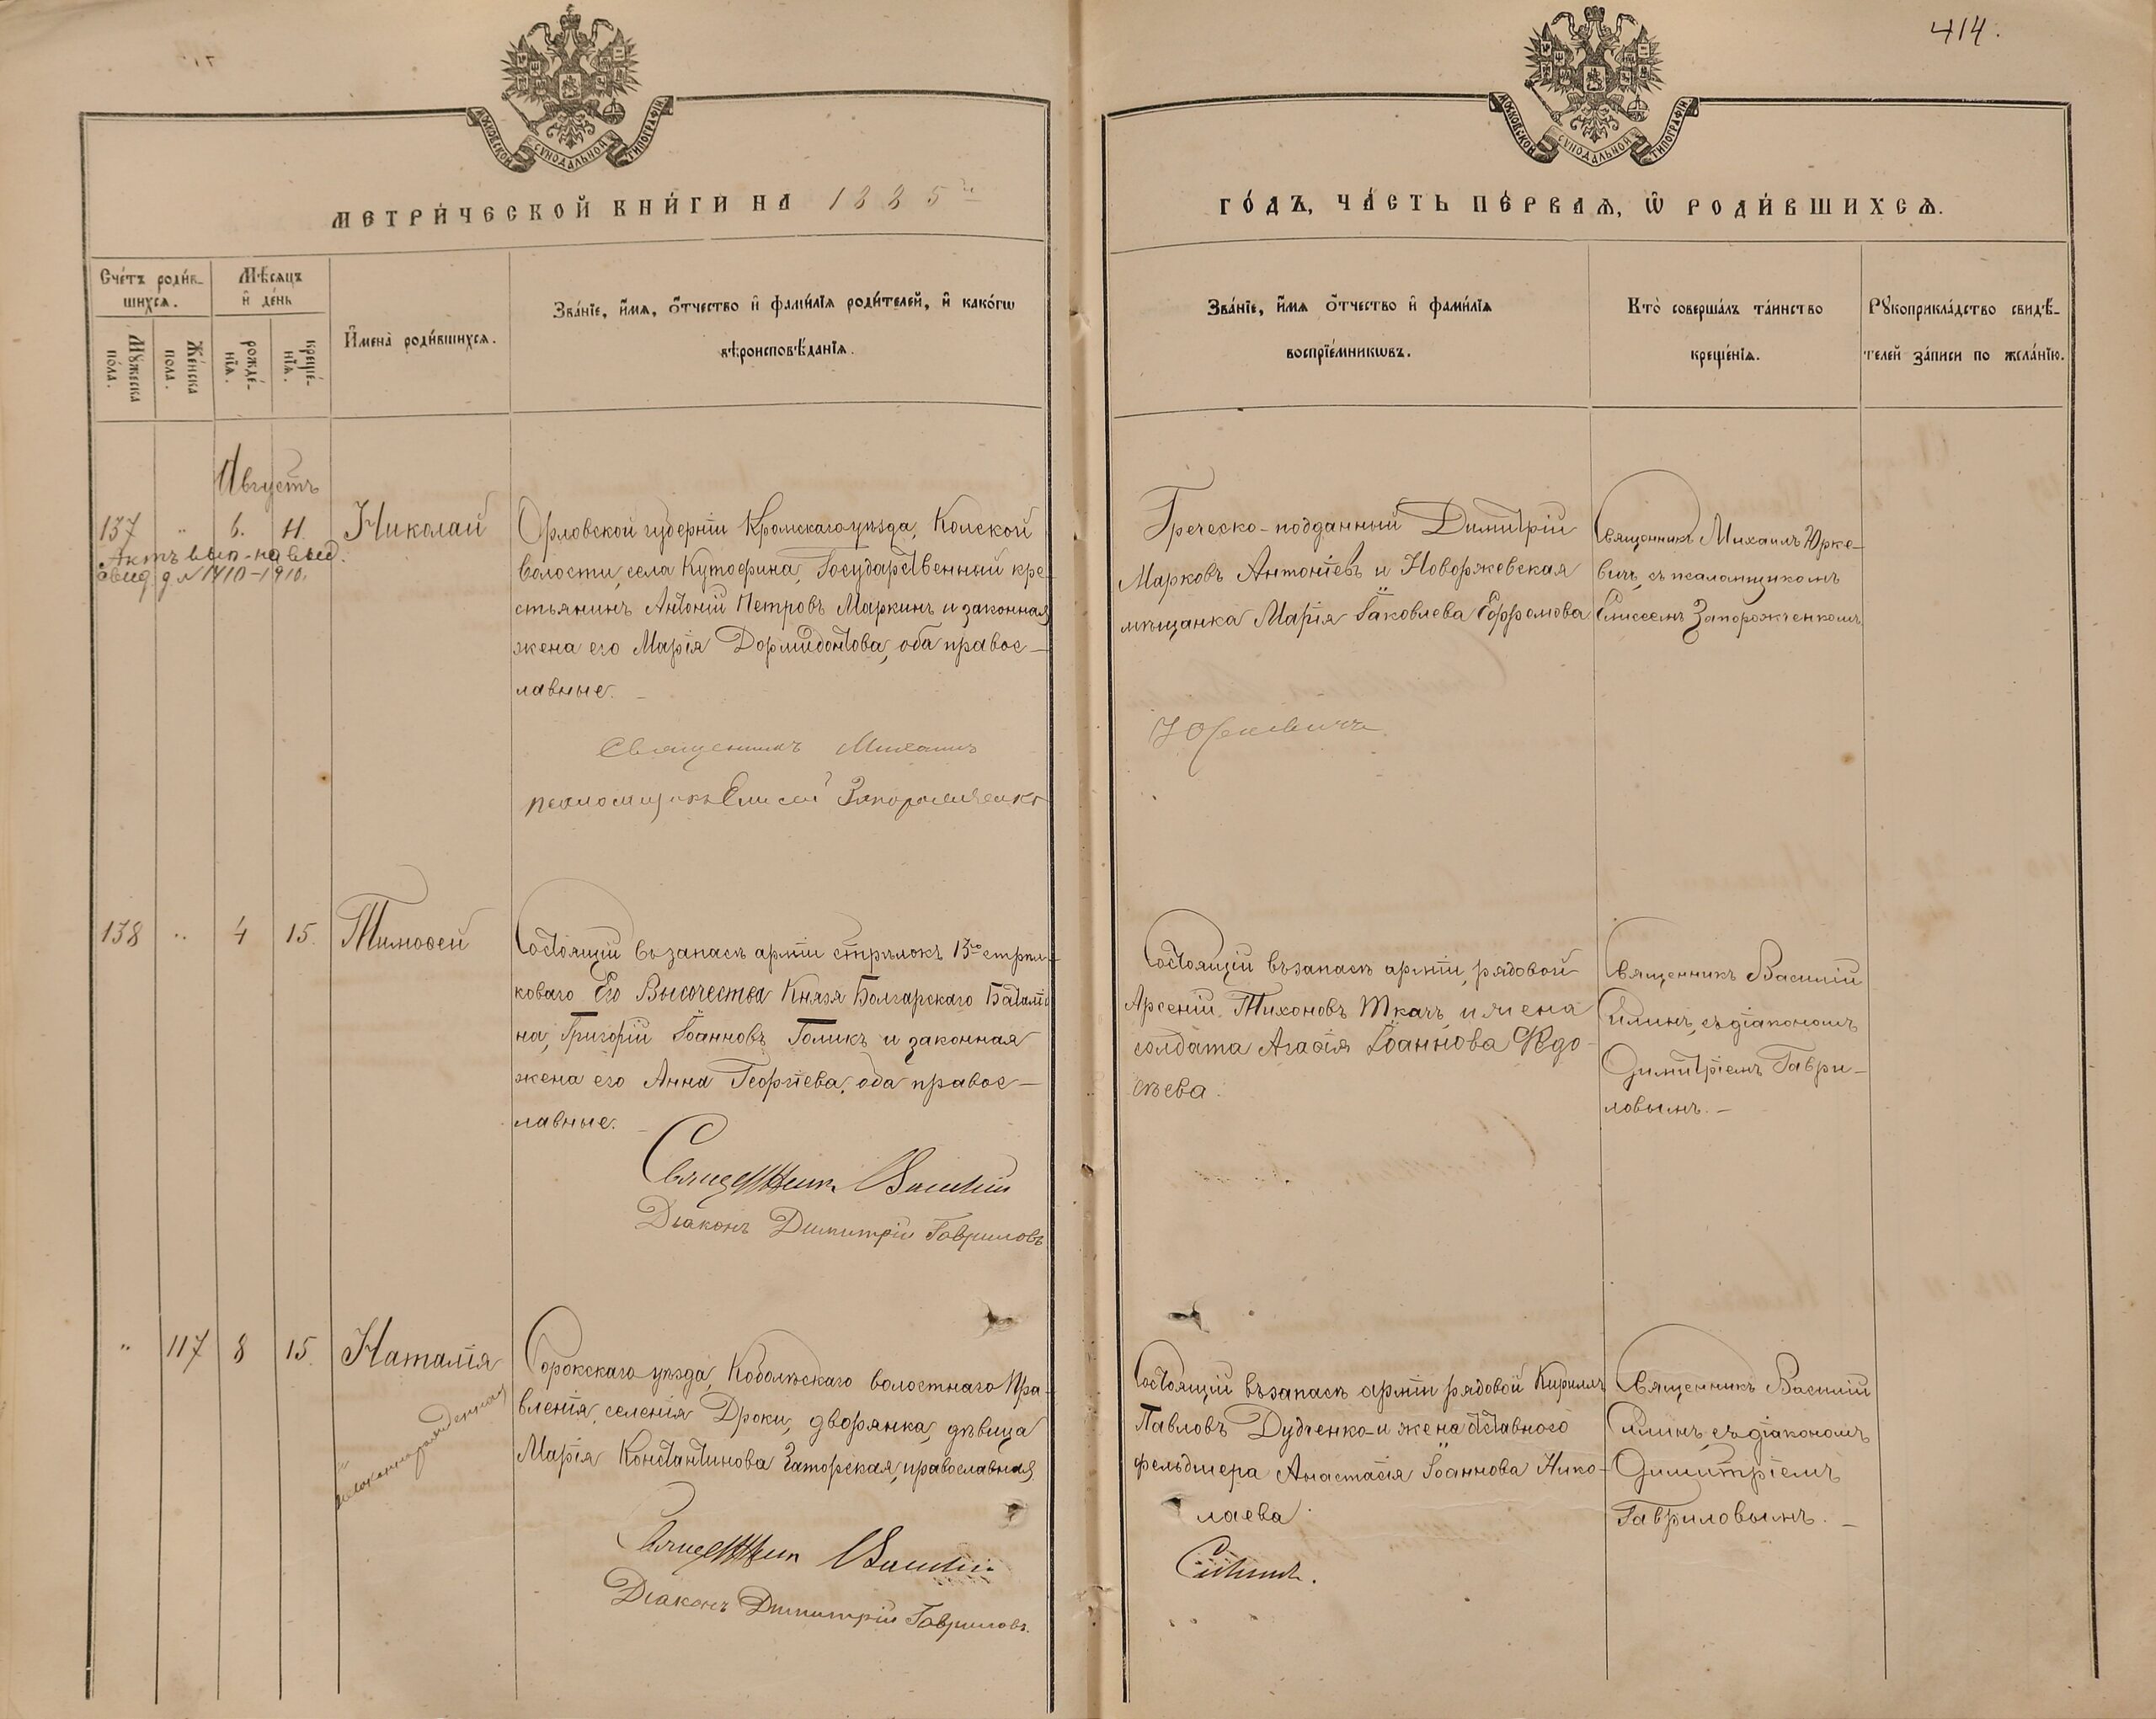 414.
МОСКОВСКОЙ СѴНОДАЛЬНОЙ ТИПОГРАФІИ
МОСКОВСКОЙ СѴНОДАЛЬНОЙ ТИПОГРАФІИ
МЕТРИ́ЧЕСКОЙ КНИ́ГИ НА 1885 й
ГО́ДЪ, ЧА́СТЬ ПЕ́РВАѦ, Ѡ РОДИ́ВШИХСѦ.
Сче́тъ роди́в-
шихсѧ.
Мѣ́сѧцъ
и҆ де́нь
Мꙋ́жеска
по́ла.
Же́нска
по́ла.
рожде́-
нїѧ.
креще́-
нїѧ.
И҆мена̀ роди́вшихсѧ.
Зва́нїе, и҆́мѧ, ѻ҆́тчество и҆ фами́лїѧ роди́телей, и҆ како́гѡ
вѣроисповѣ́данїѧ.
Зва́нїе, и҆́мѧ ѻ҆́тчество и҆ фами́лїѧ
воспрїе́мникѡвъ.
Кто̀ соверша́лъ та́инство
креще́нїѧ.
Рꙋкоприкла́дство свидѣ́-
телей за́писи по жела́нїю.
Августъ
137 " 6. 11. Николай
Актъ вып. на выд.
свид. д №1410-1910.
Орловской губерніи Кромскаго уѣзда,
волости, села Кутофина, Государственный кре-
стьянинъ Антоній Петровъ Маркинъ и законная
жена его Марія Дормидонтова, оба правос-
лавные. -
Священникъ Михаилъ
псаломщикъ Елисей Запорожченко
Греческо-подданный Димитрій
Марковъ Антоніевъ и Новоржевская
мѣщанка Марія Іаковлева Ефремова
Юркевичъ
Священникъ Михаилъ Юрке-
вичъ, съ псаломщикомъ
Елисеемъ Запорожченкомъ
138 " 4 15. Тимоѳей
Состоящій въ запасѣ арміи стрѣлокъ 13го стрѣл-
коваго Его Высочества Князя Болгарскаго Баталіо
на, Григорій Іоанновъ Голикъ и законная
жена его Анна Георгіева, оба правос-
лавные. -
Священникъ Василій
Діаконъ Димитрій Гавриловъ
Состоящій въ запасѣ арміи, рядовой
Арсеній Тихоновъ Ткачъ, и жена
солдата Агаѳія Іоаннова
Священникъ Василій
съ діакономъ
Димитріемъ Гаври-
ловымъ. -
" 117 8 15. Наталія
незаконнорожденная
Сорокскаго уѣзда, Кобольскаго волостнаго Пра-
вленія, селенія Дроки, дворянка, дѣвица
Марія Константинова Заторская, православная
Священникъ Василій
Діаконъ Димитрій Гавриловъ.
Состоящій въ запасѣ арміи рядовой Кириллъ
Павловъ Дудченко и жена отставного
фельдшера Анастасія Іоаннова Нико-
лаева.
Священникъ Василій
съ діакономъ
Димитріемъ
Гавриловымъ. -